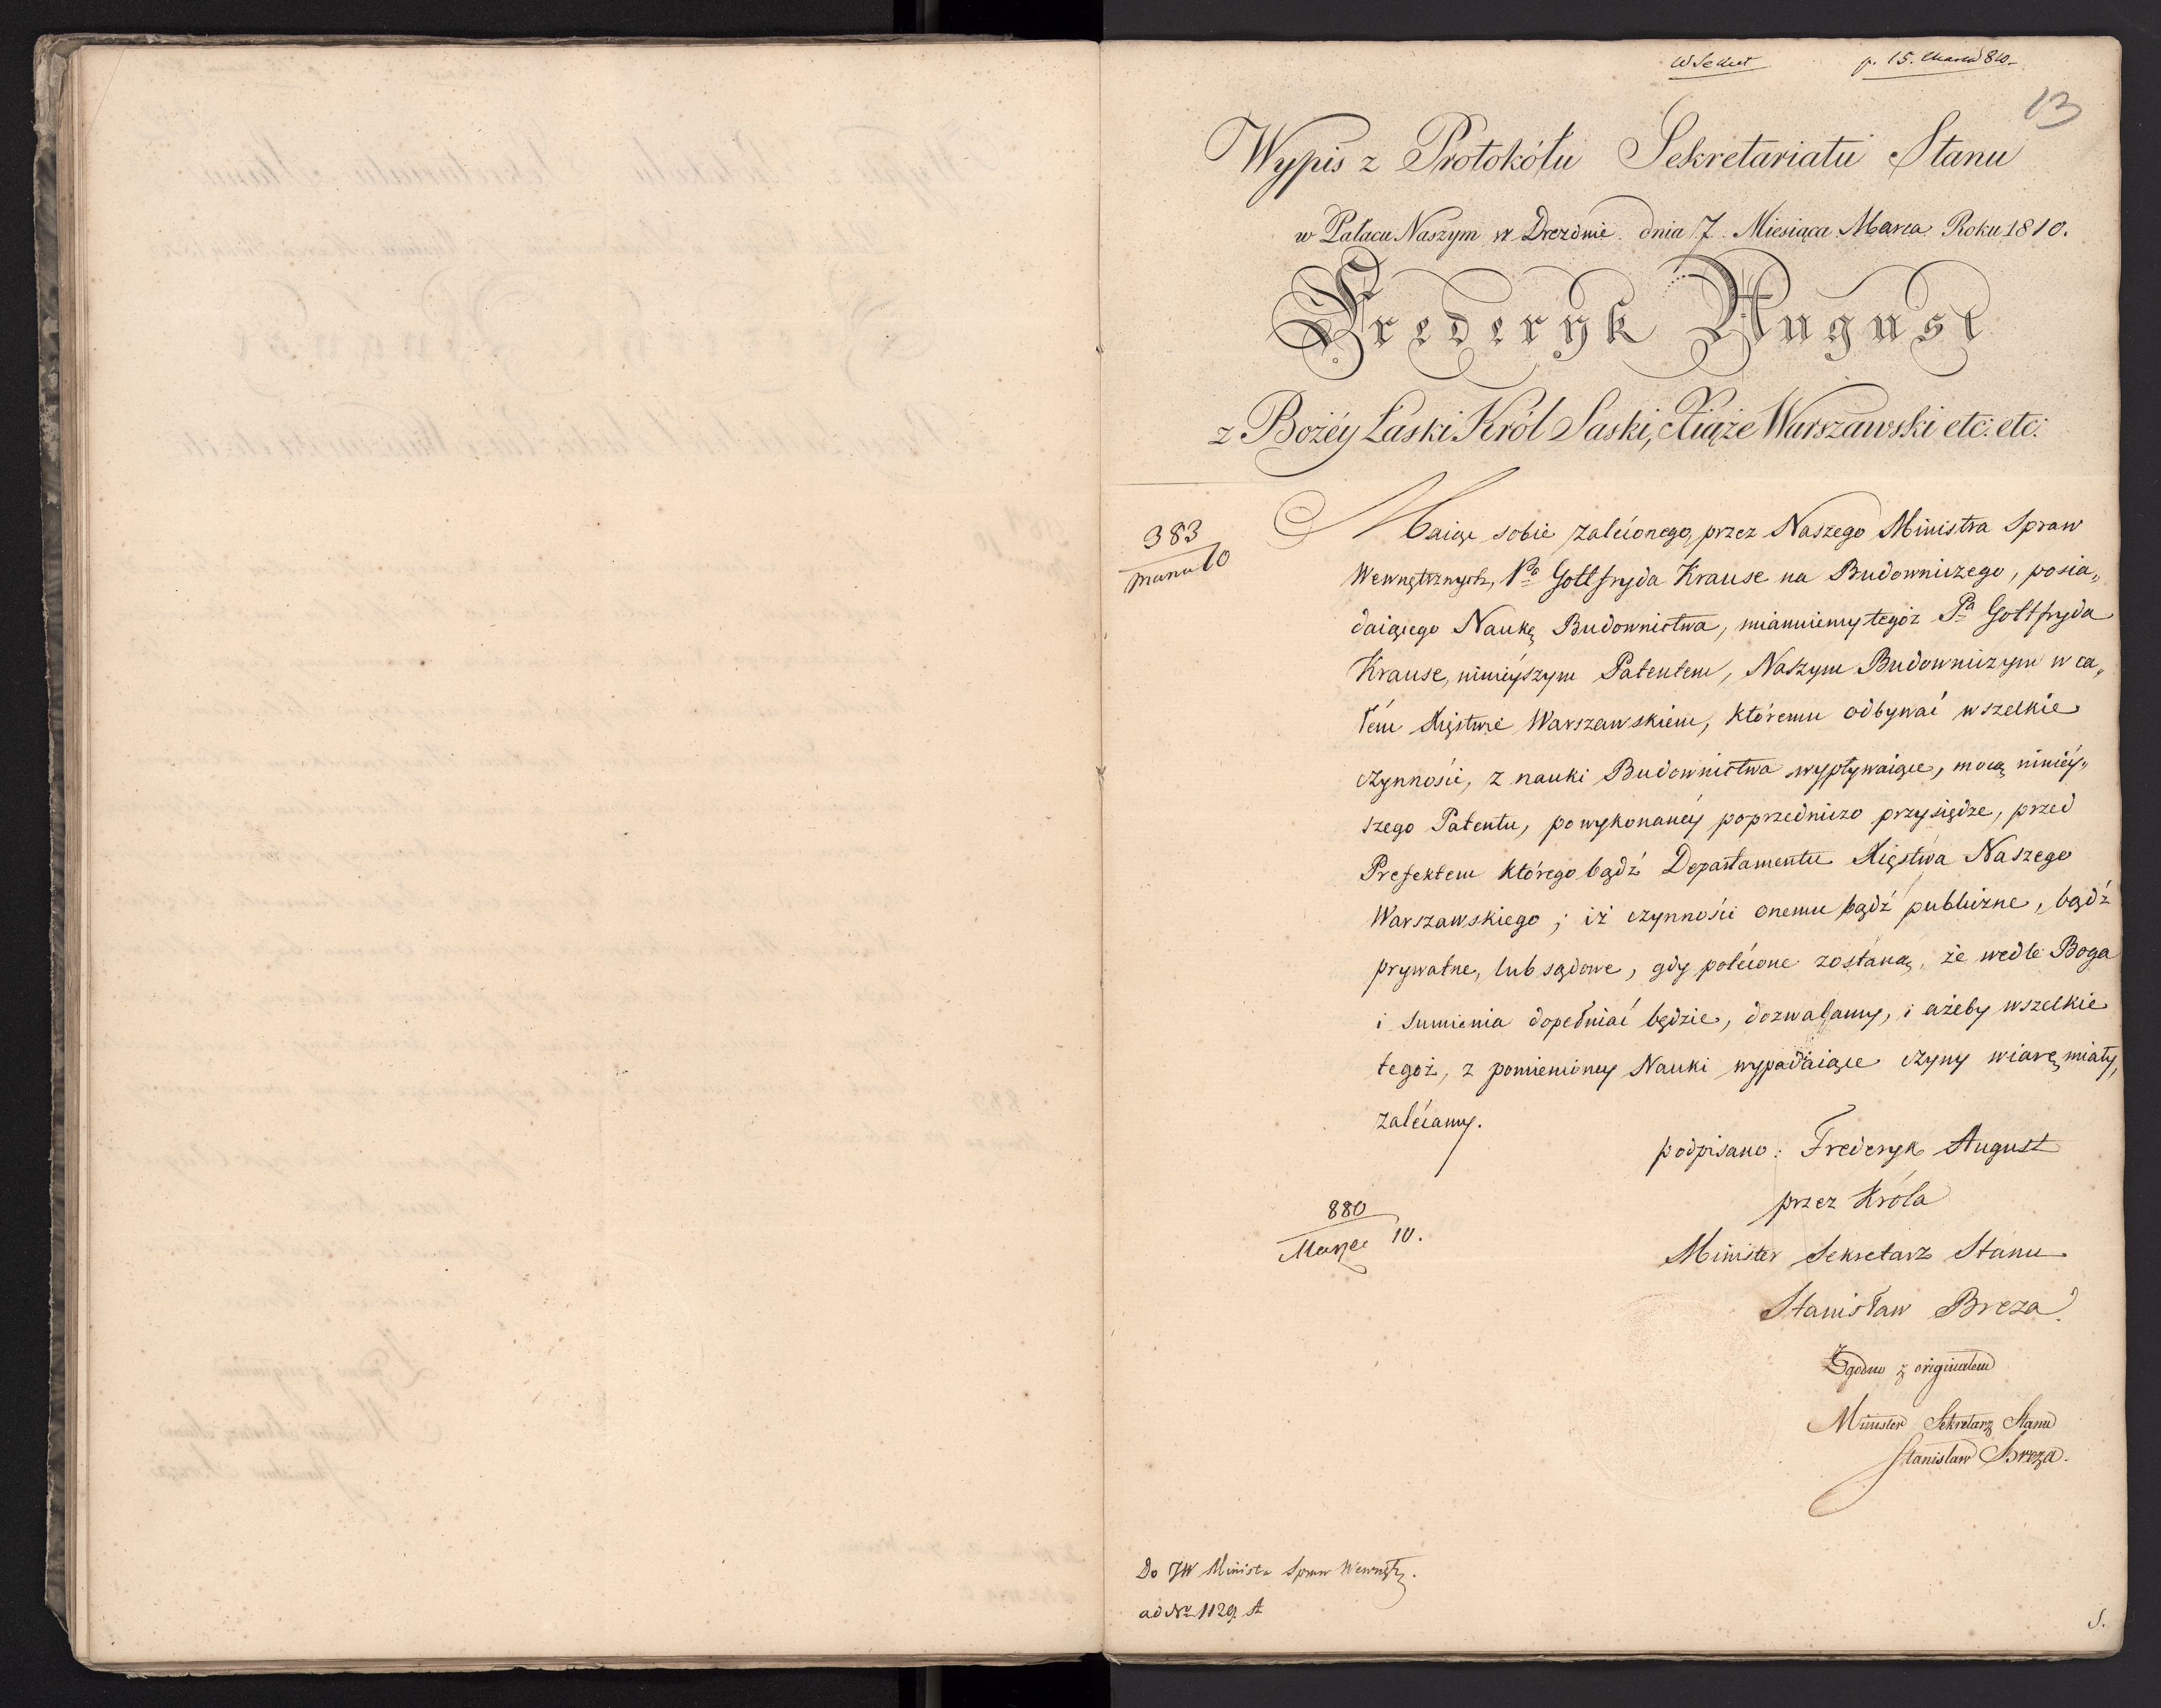 p. 15. Marca 810.
13
Wypis z Protokółu Sekretariatu Stanu
w Pałacu Naszym w Dreznie dnia 7. Miesiąca Marca Roku 1810.
Frederyk August
z Bożéy Łaski Król Saski, Xiąże Warszawski etc: etc:
383
10
Maiąc sobie zaleconego, przez Naszego Ministra Spraw
Wewnętrznych, Pa Gottfryda Krause na Budowniczego, posia„
daiącego Naukę Budownictwa, mianuiemy tegoż Pa Gottfryda
Krause, ninieyszym Patentem, Naszym Budowniczym w ca„
łém Xięstwie Warszawskiem, któremu odbywać wszelkie
czynności, z nauki Budownictwa wypływaiące, mocą ninięy„
szego Patentu, po wykonanéy poprzedniczo przysiędze, przed
Prefektem którego bądź Departamentu Xięstwa Naszego
Warszawskiego; iż czynności onemu bądź publiczne, bądź
prywatne, lub sądowe, gdy polecone zostaną, że wedle Boga
i Sumienia dopełniać będzie, dozwalamy, i ażeby wszelkie
tegoż, z pomienioney Nauki wypadaiące czyny wiarę miały,
zalécamy.
podpisano: Frederyk August
przez Króla
880
Marca 10.
Minister Sekretarz Stanu
Stanisław Breza
Zgodno z originałem
Minister Sekretarz Stanu
Stanisław Breza.
Do JW Ministra Spraw Wewnętrz.
ad No 1129. A
S.